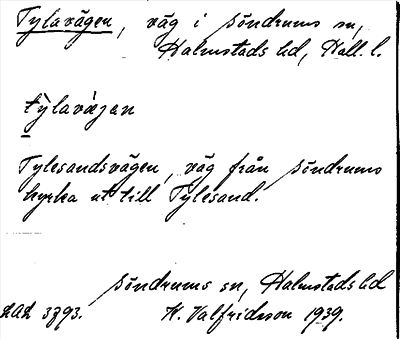 Tylavägen, väg i Söndrums sn,
Halmstads hd, Hall. l.
tỳlavæ̀jan
Tylesandsvägen, väg från Söndrums
kyrka ut till Tylesand.
Söndrums sn, Halmstads hd
LAL 3793. K. Valfridsson 1939.